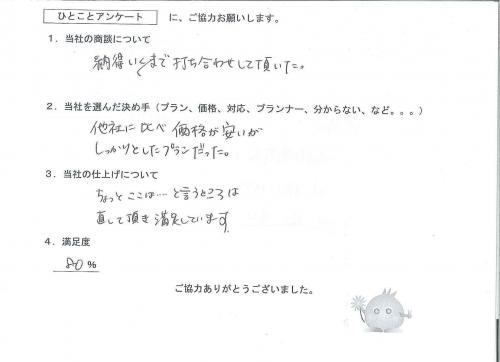 ひとことアンケート に、ご協力お願いします。
1．当社の商談について
納得いくまで打ち合わせして頂いた。
2．当社を選んだ決め手（プラン、価格、対応、プランナー、分からない、など。。。）
他社に比べ価格が安いが
しっかりとしたプランだった。
3．当社の仕上げについて
ちょっとここは…と言うところは
直して頂き満足しています
4．満足度
80％
ご協力ありがとうございました。